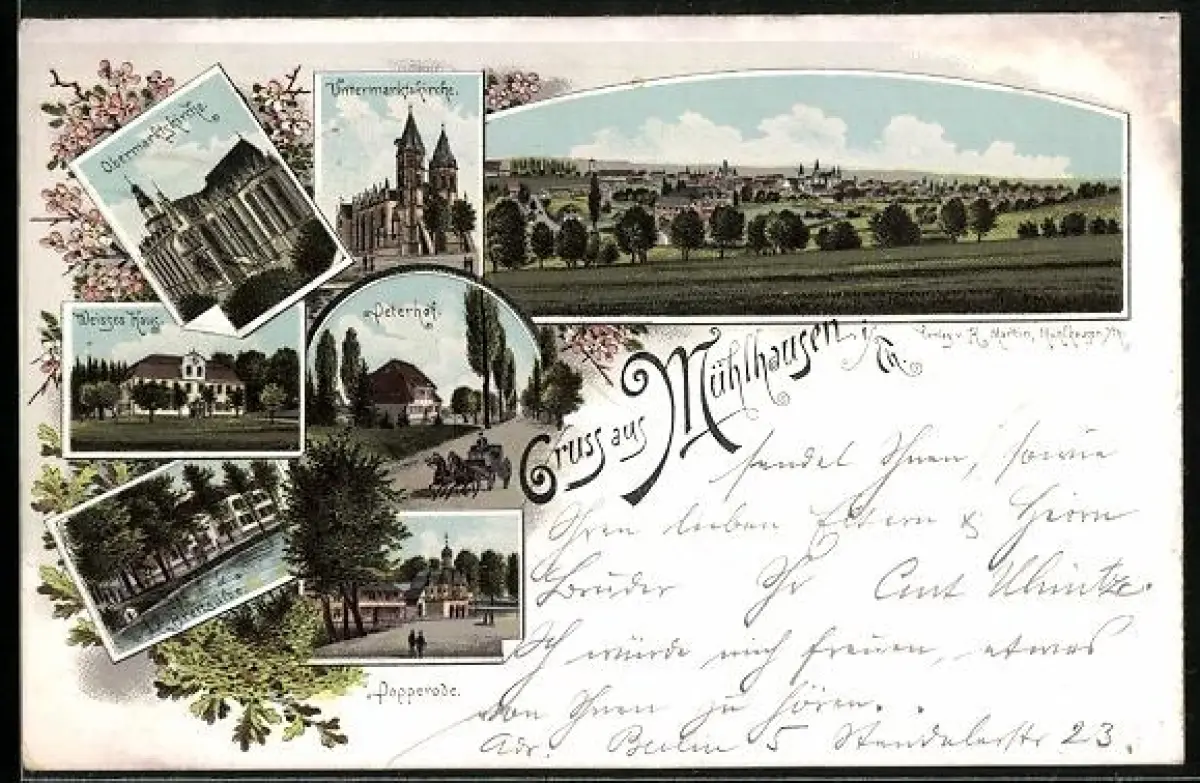 Obermarktskirche.
Untermarktskirche.
Weisses Haus.
Peterhof.
Popperode.
Gruss aus Mühlhausen i/Th.
Verlag v. R. Martin, Mühlhausen i/Th.
sendet Ihnen, sowie
Ihren lieben Eltern & Herrn
Bruder Ihr Curt
Ich würde mich freuen, etwas
von Ihnen zu hören.
Adr. Berlin 5 Stendalerstr 23.